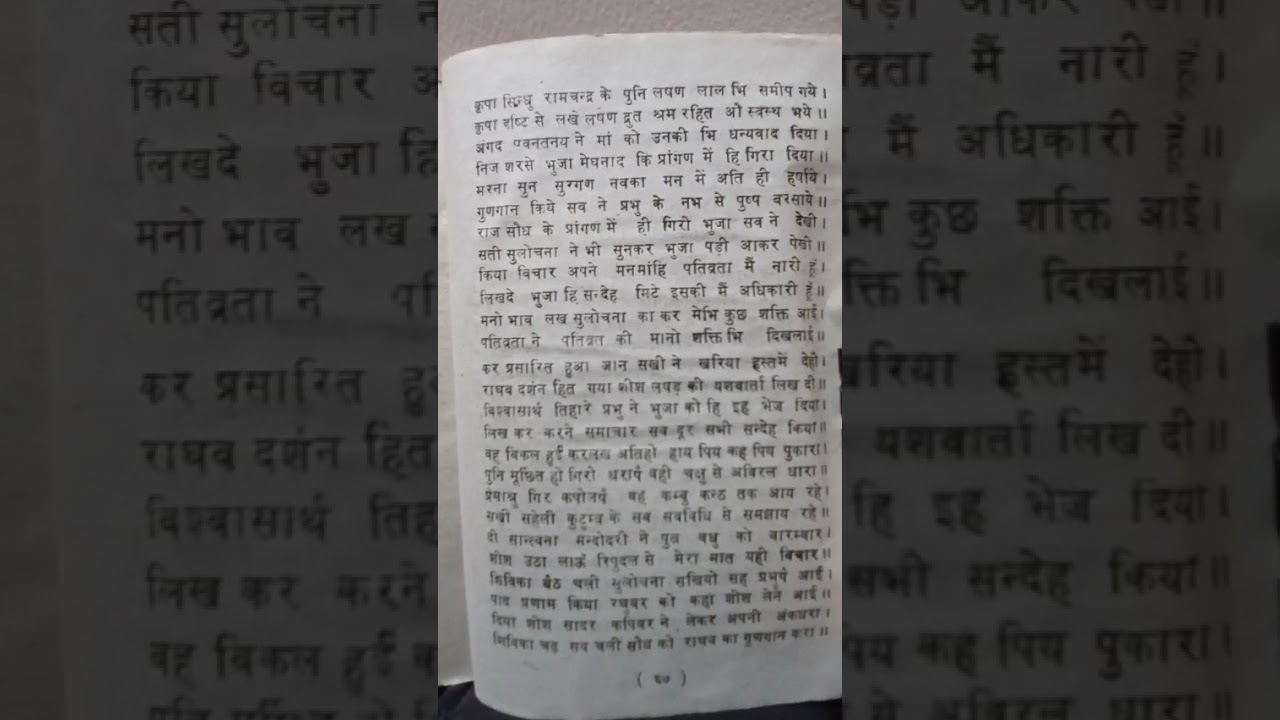 कृपा सिन्धु रामचन्द्र के पुनि लषण लाल भि समीप गये।
कृपा दृष्टि से लखे लषण द्रुत श्रम रहित औ स्वस्थ भये॥
अंगद पवनतनय ने मां को उनकी भि धन्यवाद दिया।
निज शरसे भुजा मेघनाद कि प्रांगण में हि गिरा दिया॥
मरना सुन सुरगण नवका मन में अति ही हर्षाये।
गुणगान किये सब ने प्रभु के नभ से पुष्प बरसाये॥
राज सौध के प्रांगण में ही गिरो भुजा सब ने देखी।
सती सुलोचना ने भी सुनकर भुजा पड़ी आकर पेखी॥
किया विचार अपने मनमांहि पतिव्रता मैं नारी हूं।
लिखदे भुजा हि सन्देह मिटे इसकी मैं अधिकारी हूं॥
मनो भाव लख सुलोचना का कर मेभि कुछ शक्ति आई।
पतिव्रता ने पतिव्रत की मानो शक्ति भि दिखलाई॥
कर प्रसारित हुआ जान सखी ने खरिया हस्तमें देही।
राघव दर्शन हित गया शीश लषड़ की यशवार्ता लिख दी॥
विश्वासार्थ तिहारे प्रभु ने भुजा को हि इह भेज दिया।
लिख कर करने समाचार सब दूर सभी सन्देह किया॥
वह विकल हुई करलख अतिही हाय पिय कह पिय पुकारा।
पुनि मूर्छित हो गिरी धरापै वही चक्षु से अविरल धारा॥
प्रेमाश्रु गिर कपोलपै वह कम्बु कन्ठ तक आय रहे।
सखी सहेली कुटुम्ब के सब सबविधि से समझाय रहे॥
दी सान्त्वना मन्दोदरी ने पुत्र वधु को बारम्बार।
शीश उठा लाऊँ रिपुदल से मेरा मात यही विचार॥
शिविका बैठ चली सुलोचना सखियों सह प्रभुपै आई।
पाद प्रणाम किया रघुबर को कहा शीश लेने आई॥
दिया शीश सादर कपिवर ने लेकर अपनी अंकधरा।
शिविका चढ़ सब चली सौध को राघव का गुणगान करा॥
( ६७ )